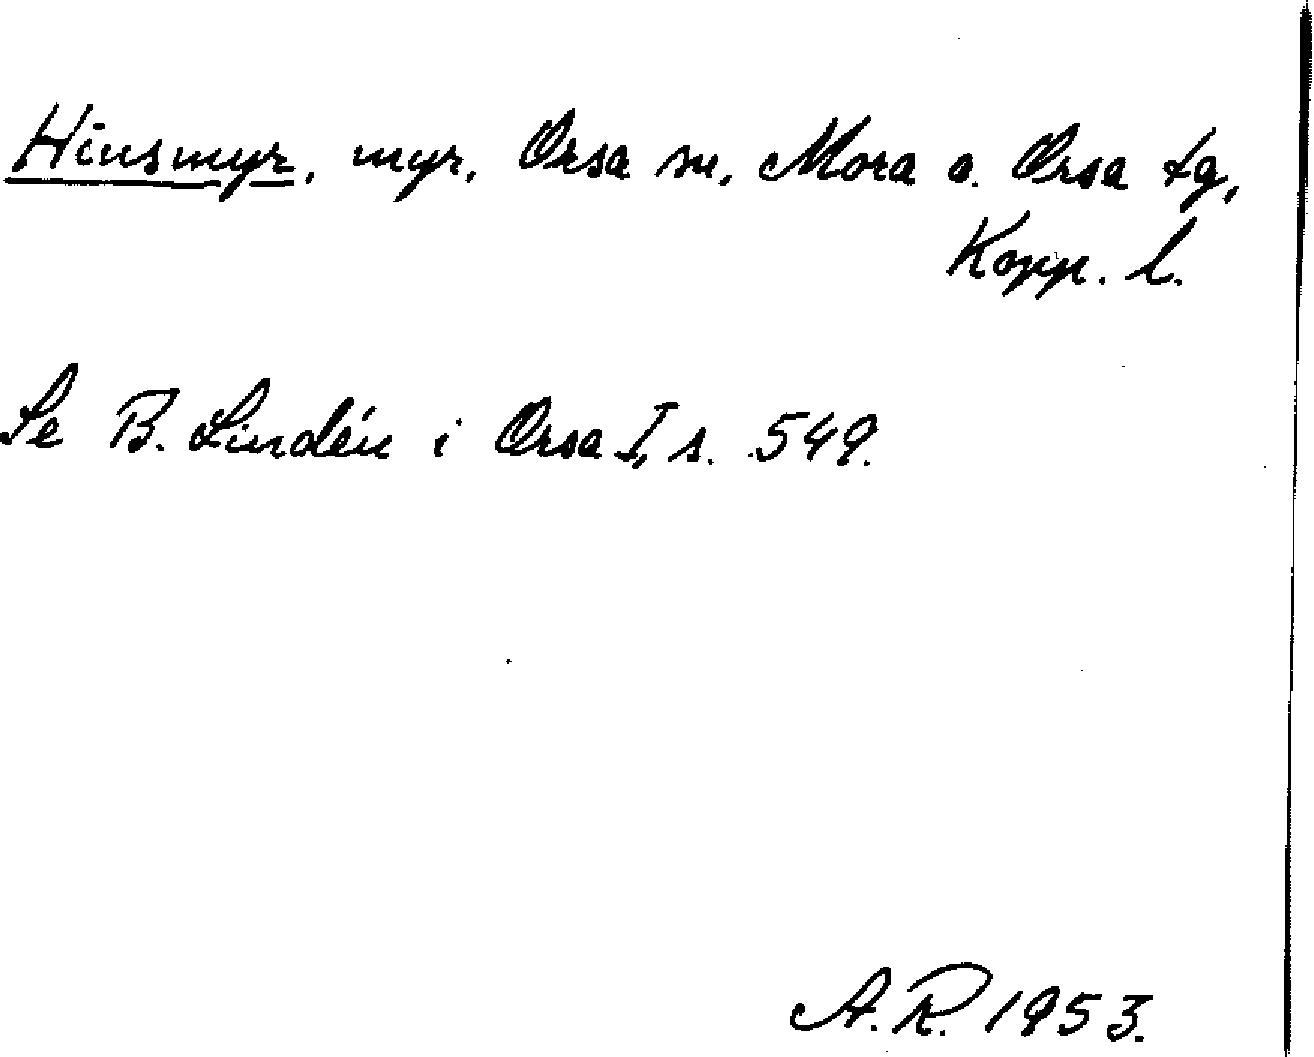 Hinsmyr, myr, Orsa sn, Mora o. Orsa tg,
Kopp. l.
Se B. Lindén i Orsa I, s. 549.
A.R. 1953.